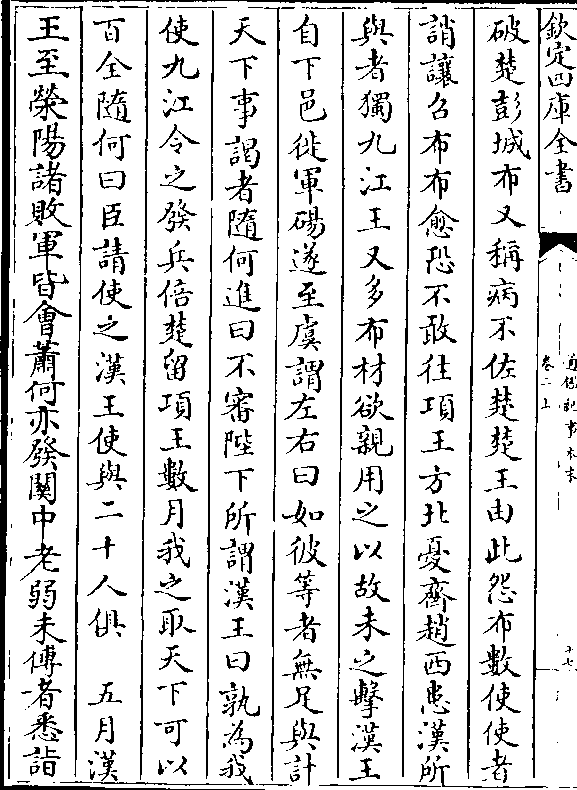 欽定四庫全書
通鑑紀事本末
卷二上
十七
破楚彭城布又稱病不佐楚楚王由此怨布數使使者
誚讓召布布愈恐不敢往項王方北憂齊趙西患漢所
與者獨九江王又多布材欲親用之以故未之擊漢王
自下邑徙軍碭遂至虞謂左右曰如彼等者無足與計
天下事謁者隨何進曰不審陛下所謂漢王曰孰為我
使九江令之發兵倍楚留項王數月我之取天下可以
百全隨何曰臣請使之漢王使與二十人俱　五月漢
王至滎陽諸敗軍皆會蕭何亦發關中老弱未傅者悉詣